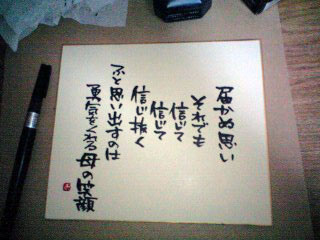 届かぬ思い
それでも
信じて
信じて
信じ抜く
ふと思い出すのは
勇気をくれる母の笑顔